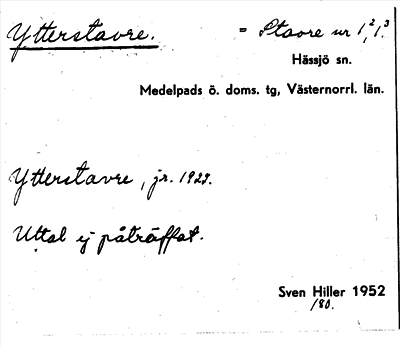 Ytterstavre. = Stavre nr 1², 1³.
Hässjö sn.
Medelpads ö. doms. tg, Västernorrl. län.
Ytterstavre, jr. 1927.
Uttal ej påträffat.
Sven Hiller 1952
/80.